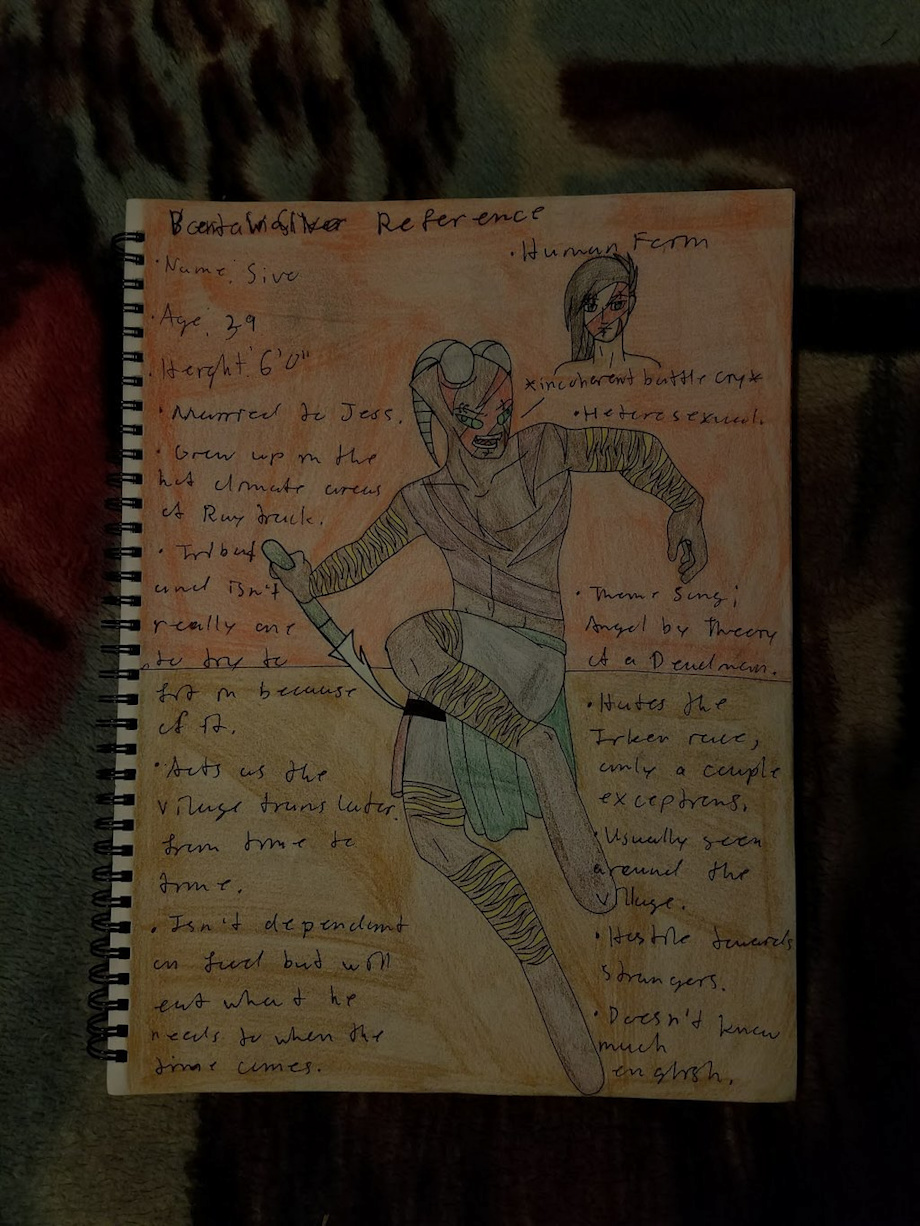 Reference
· Human Form
· Name: Sive
· Age: 39
· Height: 6'0"
*incoherent battle cry*
· Married to Jess.
· Heterosexual.
· Grew up in the
hot climate areas
of
· Tribal
and isn't
really one
to try to
fit in because
of it.
· Acts as the
village translater
from time to
time.
· Isn't dependant
on fuel but will
eat what he
needs to when the
time comes.
· Theme Song;
Angel by Theory
of a Deadman.
· Hates the
Irken race,
only a couple
exceptions.
· Usually seen
around the
village.
· Hostile towards
strangers.
· Doesn't know
much
english.